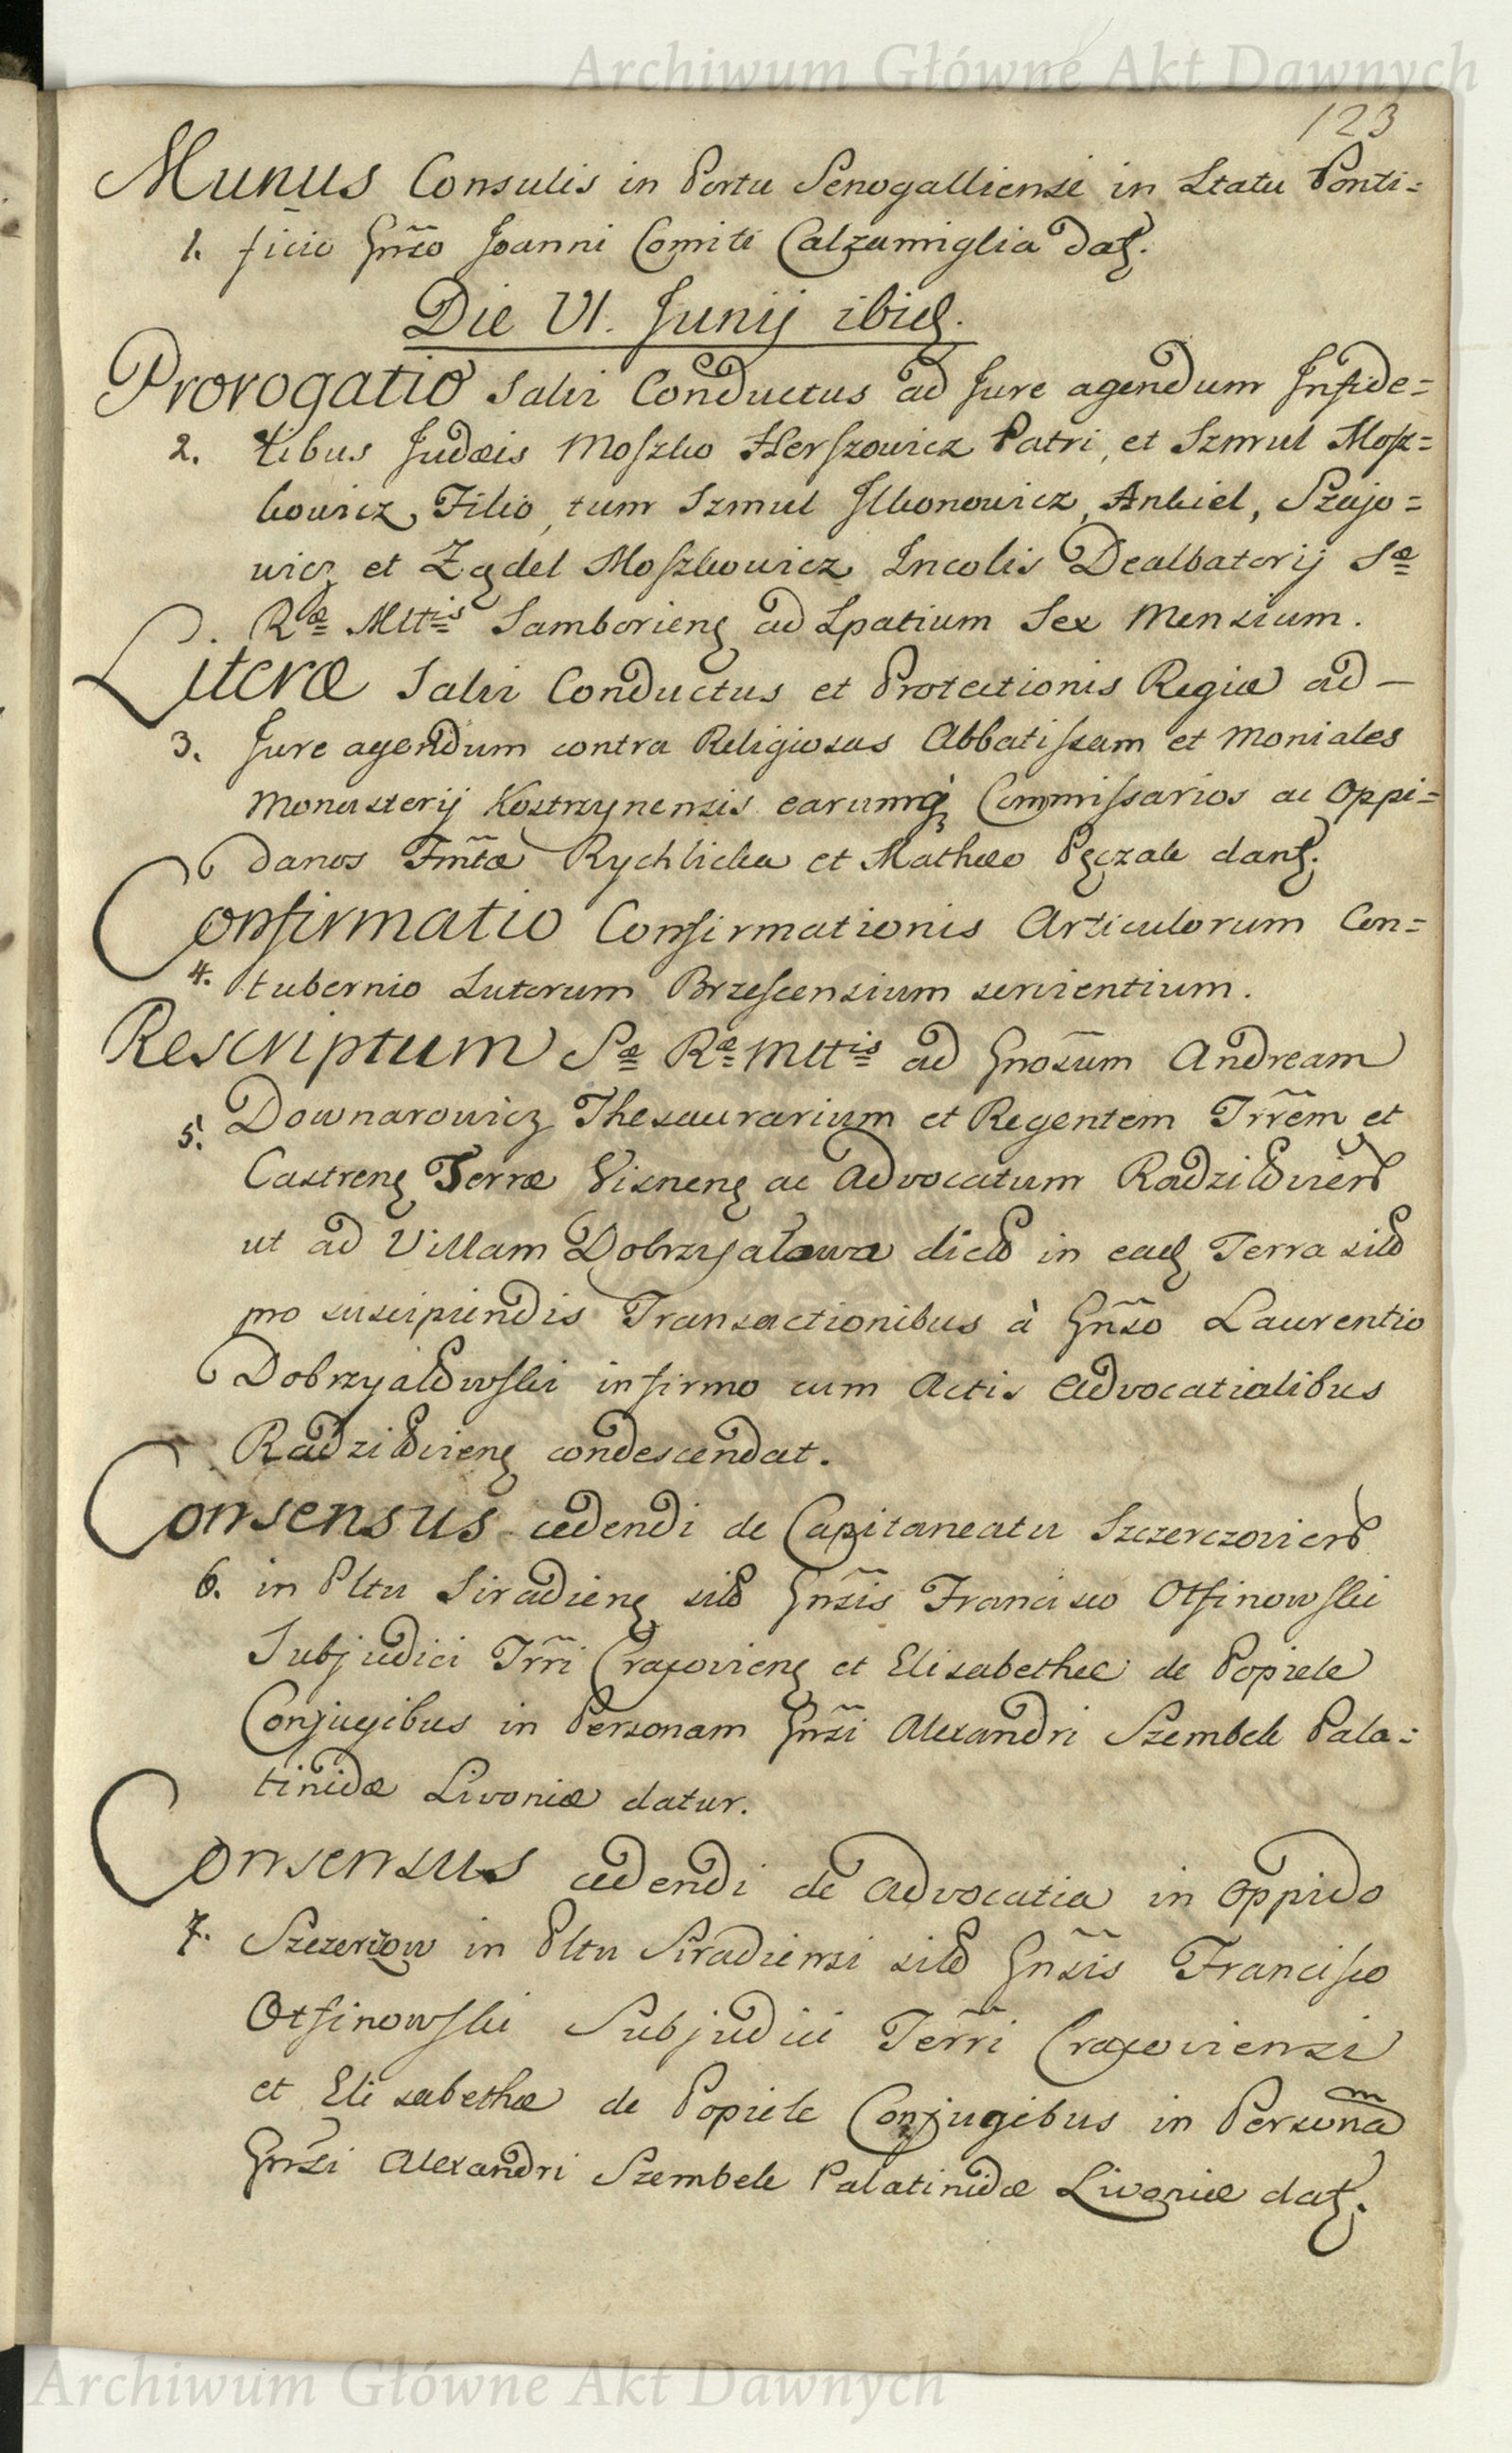 Archiwum Główne Akt Dawnych
123
Munus Consulis in Portu Senogalliensi in Statu Ponti=
1. ficio Gnẽso Joanni Comiti Calzamiglia dat.
Die VI. Junij ibid.
Prorogatio Salvi Conductus ad Jure agendum Infide=
2. libus Judæis Moszko Herszowicz Patri, et Szmul Mosz=
kowicz Filio, tum Szmul Ilkonowicz, Ankiel, Szajo=
wicz et Zędel Moszkowicz Incolis Dealbatorij Sæ
Ræ Mttis Samborieñ ad Spatium Sex Mensium.
Literæ Salvi Conductus et Protectionis Regiæ ad —
3. Jure agendum contra Religiosas Abbatissam et Moniales
Monasterij Kostrzynensis earumq Commissarios ac Oppi=
danos Fmtæ Rychlicka et Mathæo Pęczak dant.
Confirmatio Confirmationis Articulorum Con=
4. tubernio Sutorum Brzescensium servientium.
Rescriptum Sæ Ræ Mttis ad Gnosum Andream
5. Downarowicz Thesaurarium et Regentem Trrem et
Castreñ Terræ Visneñ ac Advocatum Radziłovieñ
ut ad Villam Dobrzyałowa dictõ in ead Terra sitõ
pro suscipiendis Transactionibus à Gnso Laurentio
Dobrzyałowski infirmo cum Actis Advocatialibus
Radziłovieñ condescendat.
Consensus cedendi de Capitaneatu Szczerczovieñ
6. in Pltu Siradieñ sitõ Gnsis Francisco Otfinowski
Subjudici Trri Cracovieñ et Elisabethæ de Popiele
Conjugibus in Personam Gnsi Alexandri Szembek Pala=
tinidæ Livoniæ datur.
Consensus cedendi de Advocatia in Oppido
7. Szczerczow in Pltu Siradiensi sitõ Gnsis Francisco
Otfinowski Subjudici Terri Cracoviensi
et Elisabethæ de Popiele Conjugibus in Personam
Gnsi Alexandri Szembek Palatinidæ Livoniæ dat.
Archiwum Główne Akt Dawnych